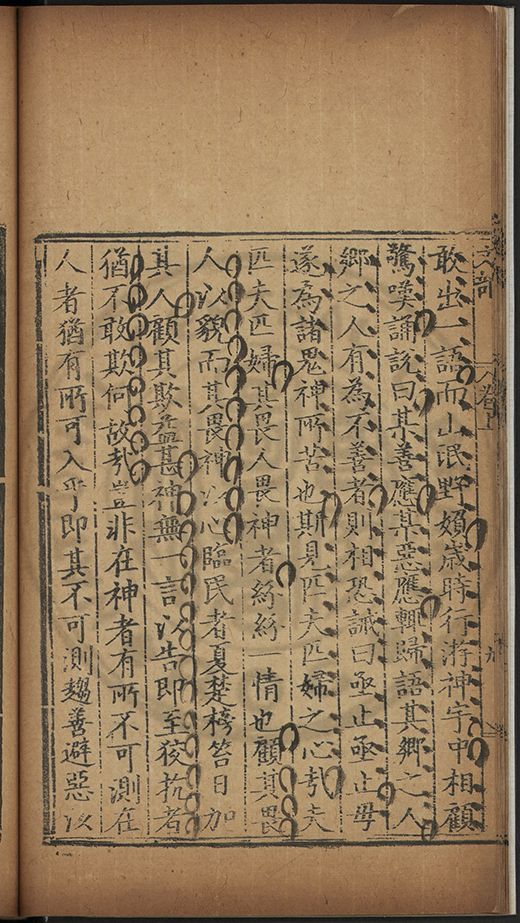 敢出一語而山氓野媍歳時行游神宇中相顧
驚嘆誦説曰某善應某惡應輙歸語其鄉之人
鄉之人有為不善者則相恐誡曰亟止亟止毋
遂為諸鬼神所苦也斯見匹夫匹婦之心㢤夫
匹夫匹婦其畏人畏神者紛紛一情也顧其畏
人以貌而其畏神以心臨民者夏楚榜笞日加
其人顧其欺益甚神無一言以告即至狡抗者
猶不敢欺何故㢤豈非在神者有所不可測在
人者猶有所可入乎即其不可測趨善避惡以